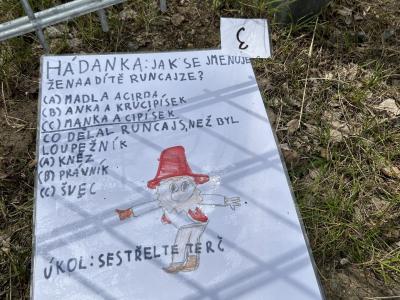 3
HÁDANKA: JAK SE JMENUJE
ŽENA A DÍTĚ RUNCAJZE?
(A) MADLA A CIRDA
(B) ANKA A KRUCIPÍSEK
(C) MANKA A CIPÍSEK
CO DĚLAL RUNCAJS, NEŽ BYL
LOUPEŽNÍK
(A) KNĚZ
(B) PRÁVNÍK
(C) ŠVEC
ÚKOL: SESTŘELTE TERČ